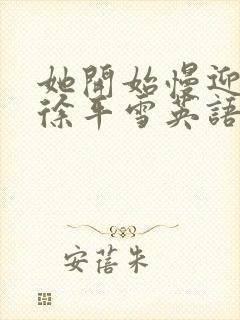 她開始慢迎
徐年雪英語
安蓓朱